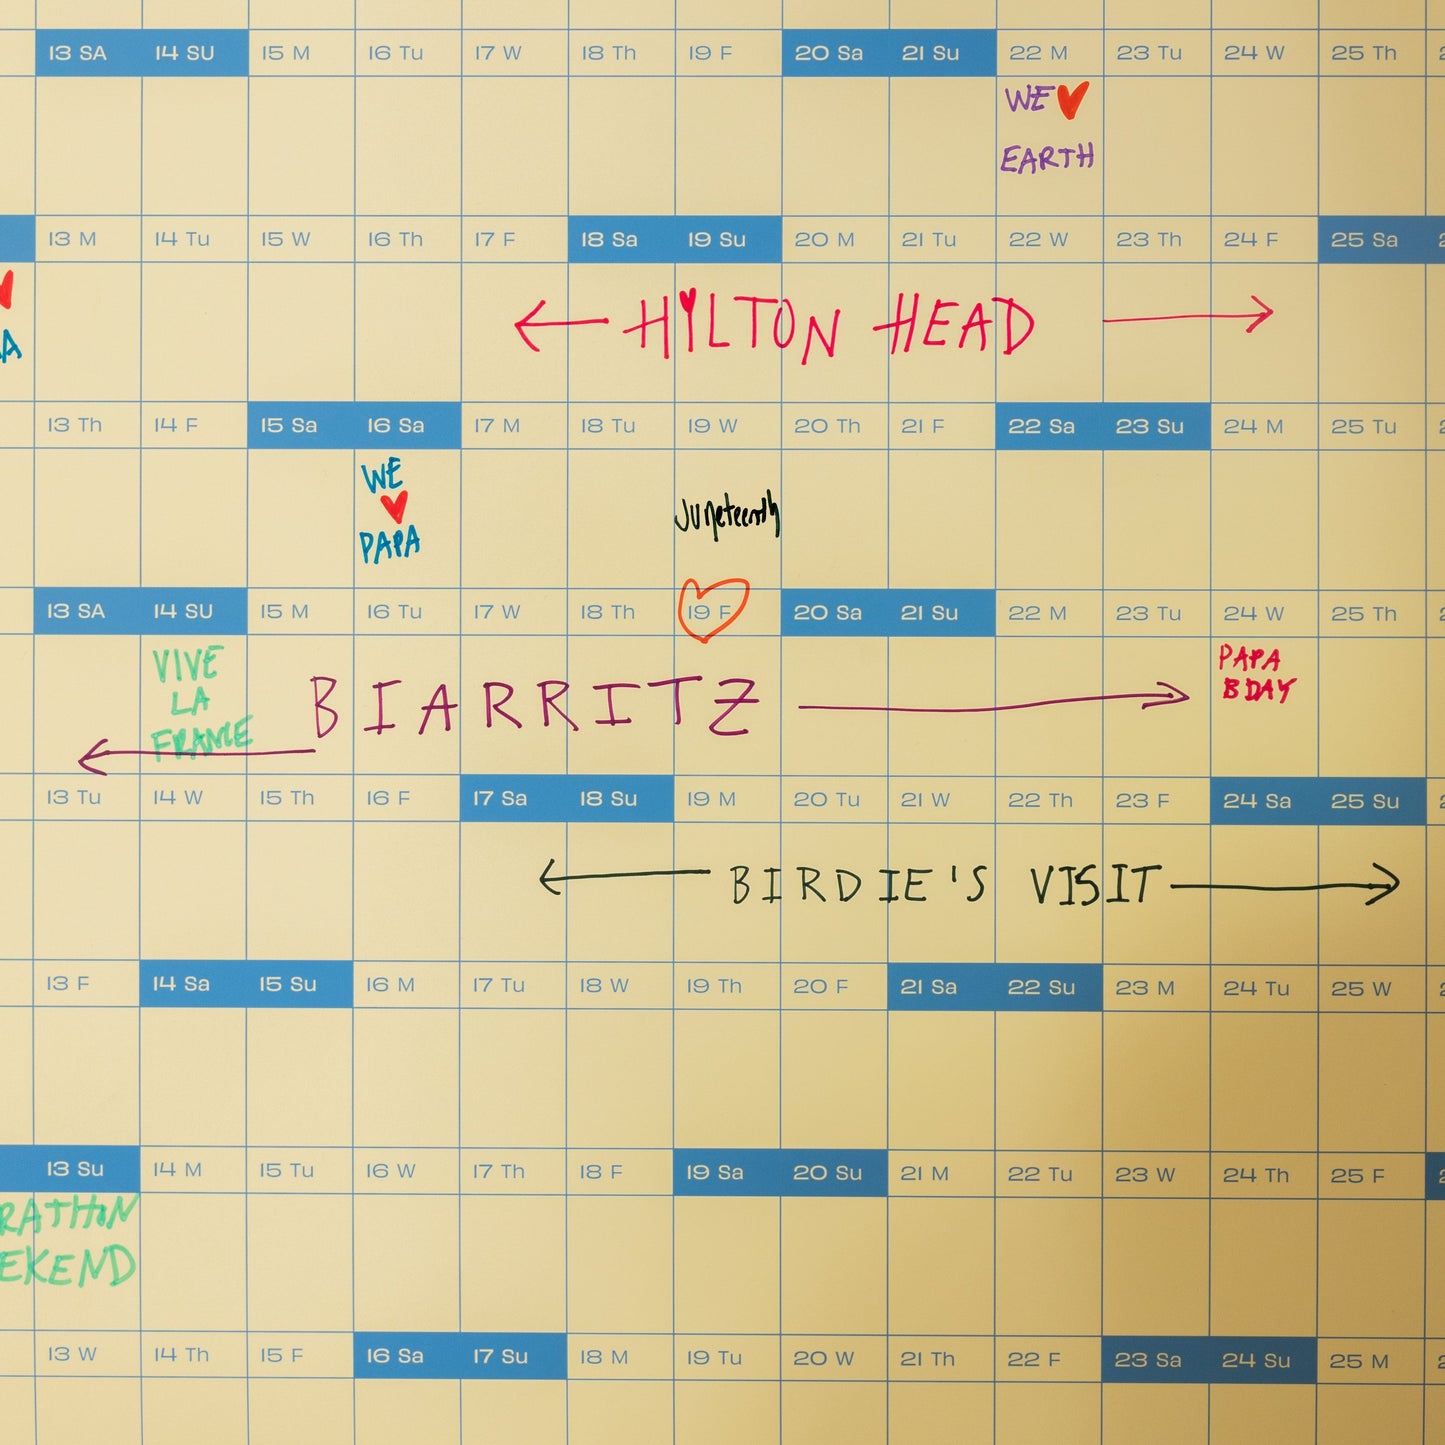 13 SA 14 SU 15 M 16 Tu 17 W 18 Th 19 F 20 Sa 21 Su 22 M 23 Tu 24 W 25 Th
WE
EARTH
13 M 14 Tu 15 W 16 Th 17 F 18 Sa 19 Su 20 M 21 Tu 22 W 23 Th 24 F 25 Sa
A
HILTON HEAD
13 Th 14 F 15 Sa 16 Sa 17 M 18 Tu 19 W 20 Th 21 F 22 Sa 23 Su 24 M 25 Tu
WE
PAPA
Juneteenth
13 SA 14 SU 15 M 16 Tu 17 W 18 Th 19 F 20 Sa 21 Su 22 M 23 Tu 24 W 25 Th
VIVE
LA
FRANCE
BIARRITZ
PAPA
BDAY
13 Tu 14 W 15 Th 16 F 17 Sa 18 Su 19 M 20 Tu 21 W 22 Th 23 F 24 Sa 25 Su
BIRDIE'S VISIT
13 F 14 Sa 15 Su 16 M 17 Tu 18 W 19 Th 20 F 21 Sa 22 Su 23 M 24 Tu 25 W
13 Su 14 M 15 Tu 16 W 17 Th 18 F 19 Sa 20 Su 21 M 22 Tu 23 W 24 Th 25 F
RATHON
EKEND
13 W 14 Th 15 F 16 Sa 17 Su 18 M 19 Tu 20 W 21 Th 22 F 23 Sa 24 Su 25 M